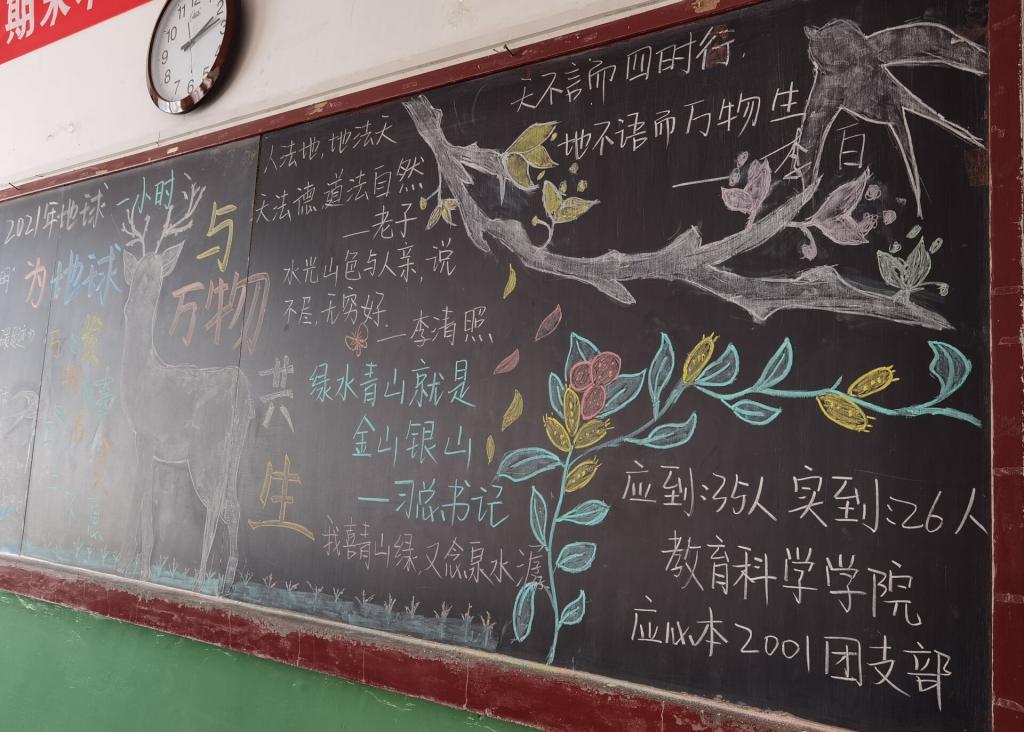 期末
2021年地球一小时
为地球
发
与
万物
共
生
人法地,地法天
天法德,道法自然
—老子
水光山色与人亲,说
不尽,无穷好.
—李清照
绿水青山就是
金山银山
—习总书记
我喜青山绿又念泉水潺
天不言而四时行,
地不语而万物生
—李白
应到:35人 实到:26人
教育科学学院
应心本2001团支部